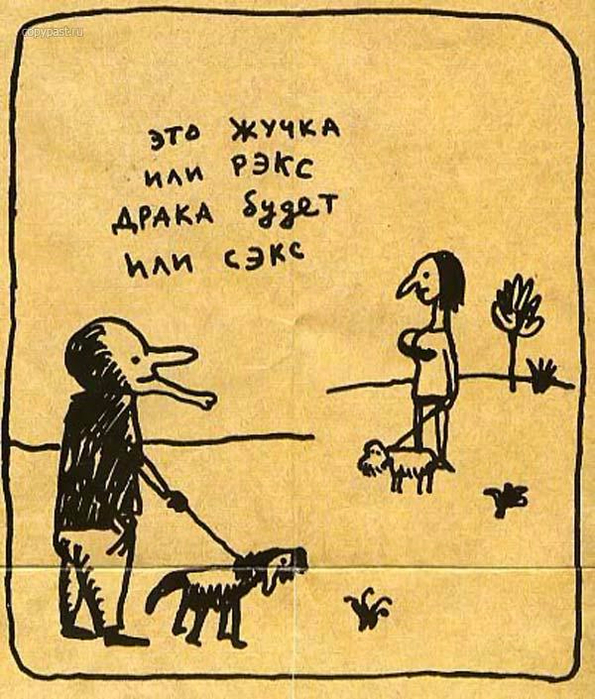 copypast.ru
ЭТО ЖУЧКА
ИЛИ РЭКС
ДРАКА будЕТ
ИЛИ СЭКС